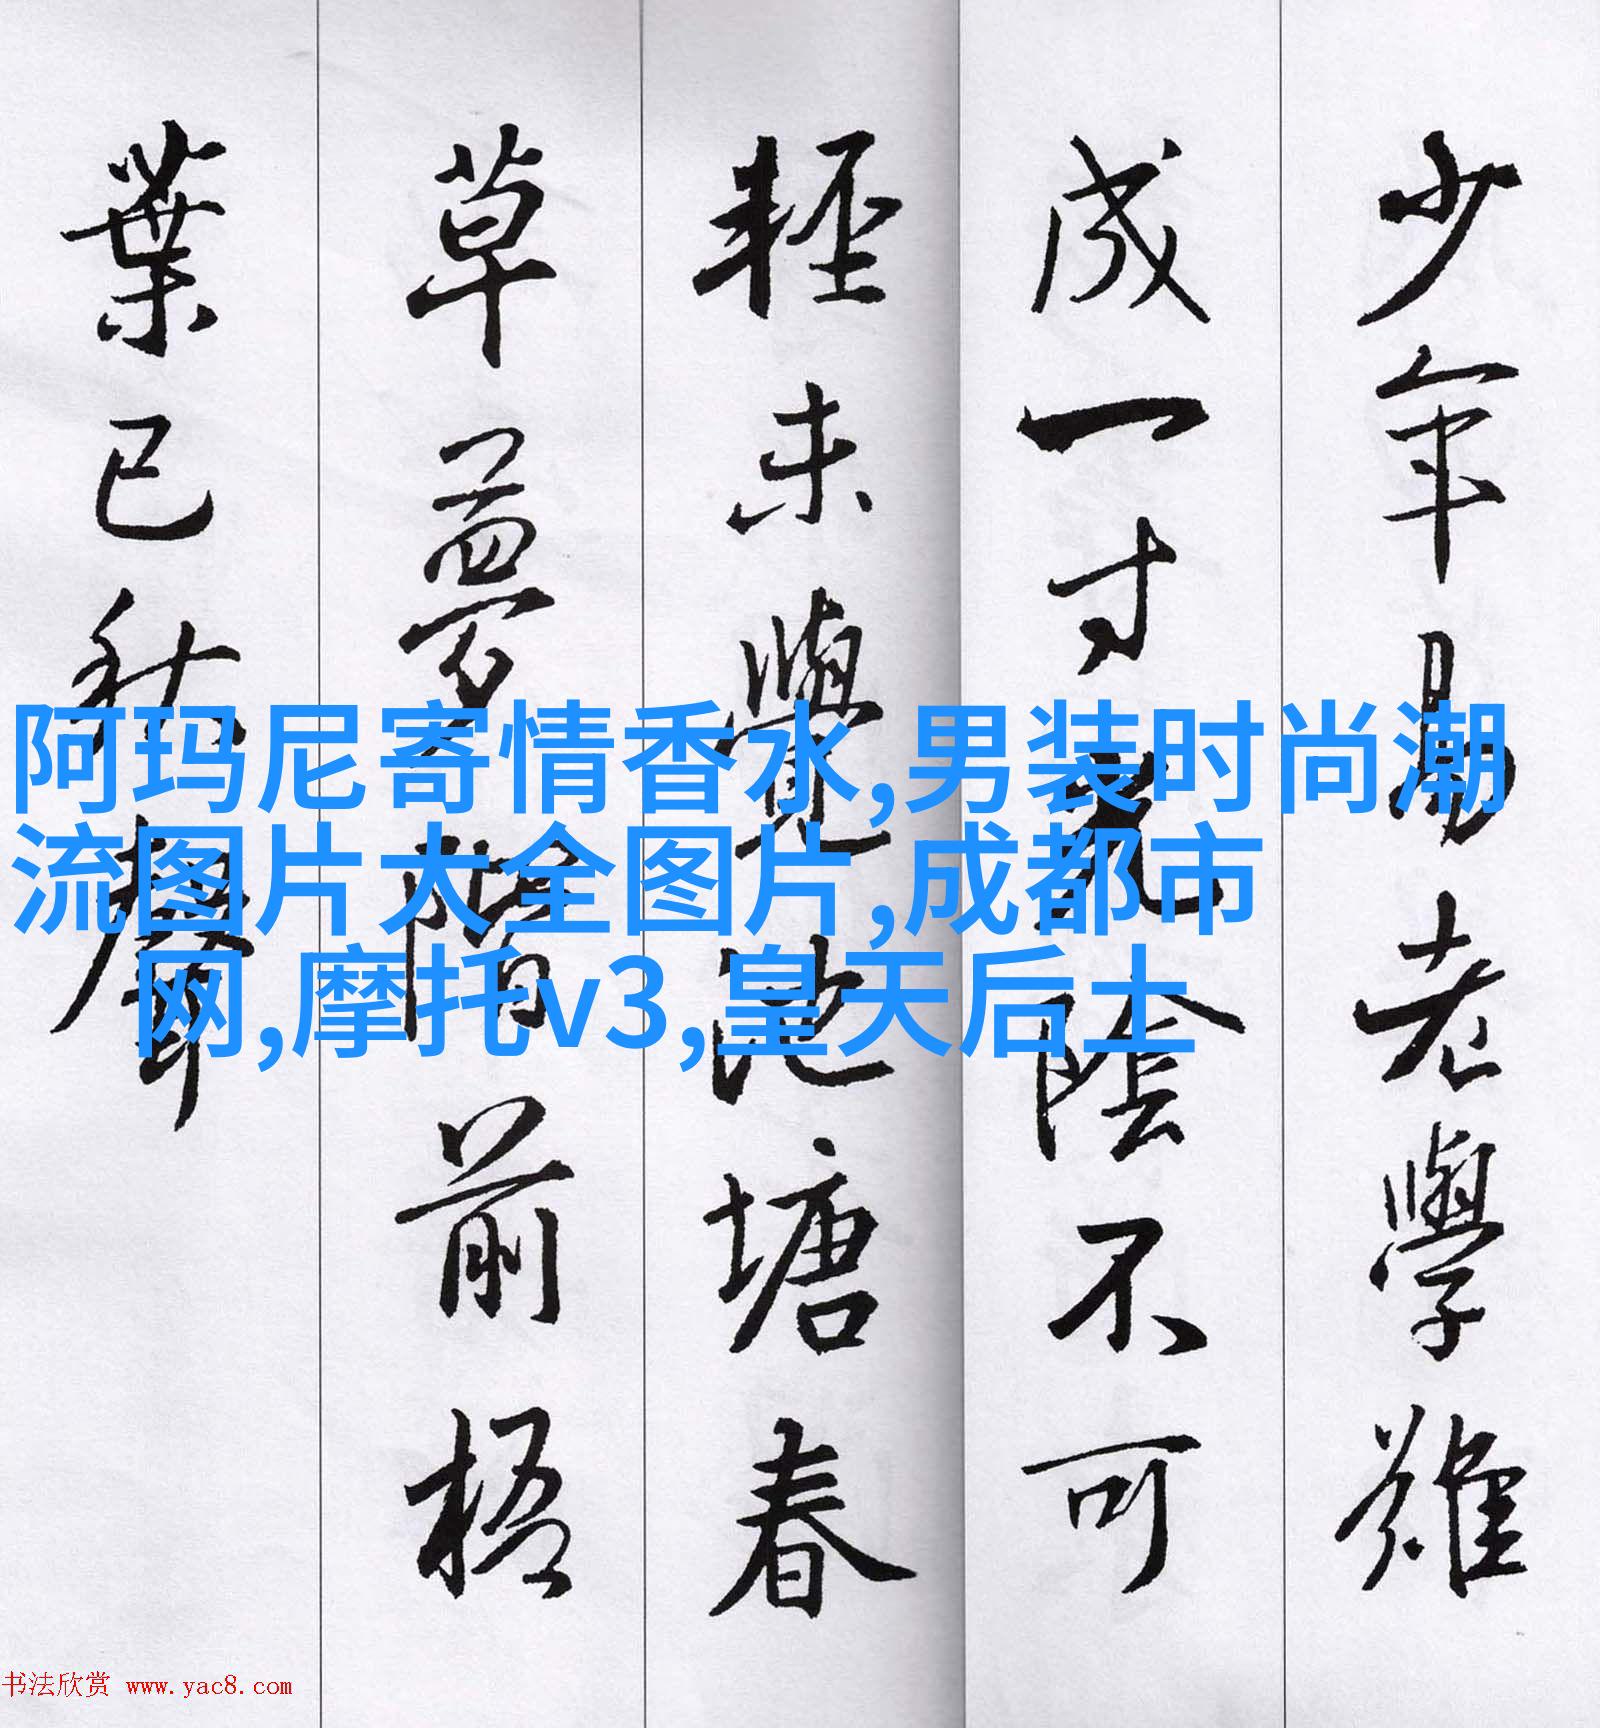 少年易老學難
成一寸光陰不可
輕未覺池塘春
草夢階前梧
葉已秋聲
阿玛尼寄情香水,男装时尚潮
流图片大全图片,成都市
网,摩托v3,皇天后土
书法欣赏 www.yac8.com